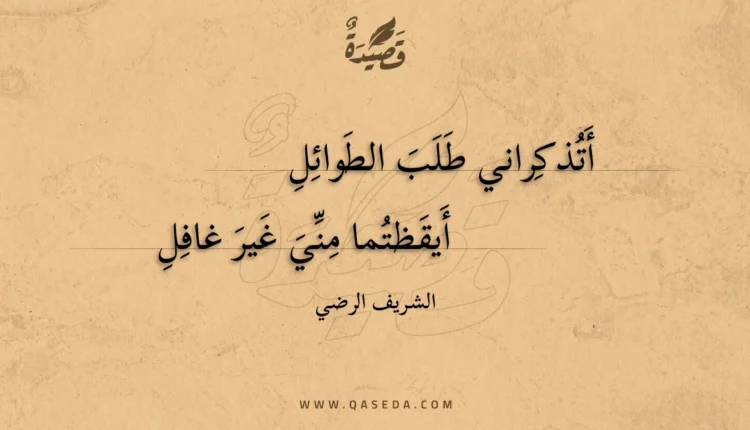 قَصِيدَةٌ
أَتُذكِراني طَلَبَ الطَوائِلِ
أَيقَظتُما مِنِّيَ غَيرَ غافِلِ
الشريف الرضي
WWW.QASEDA.COM